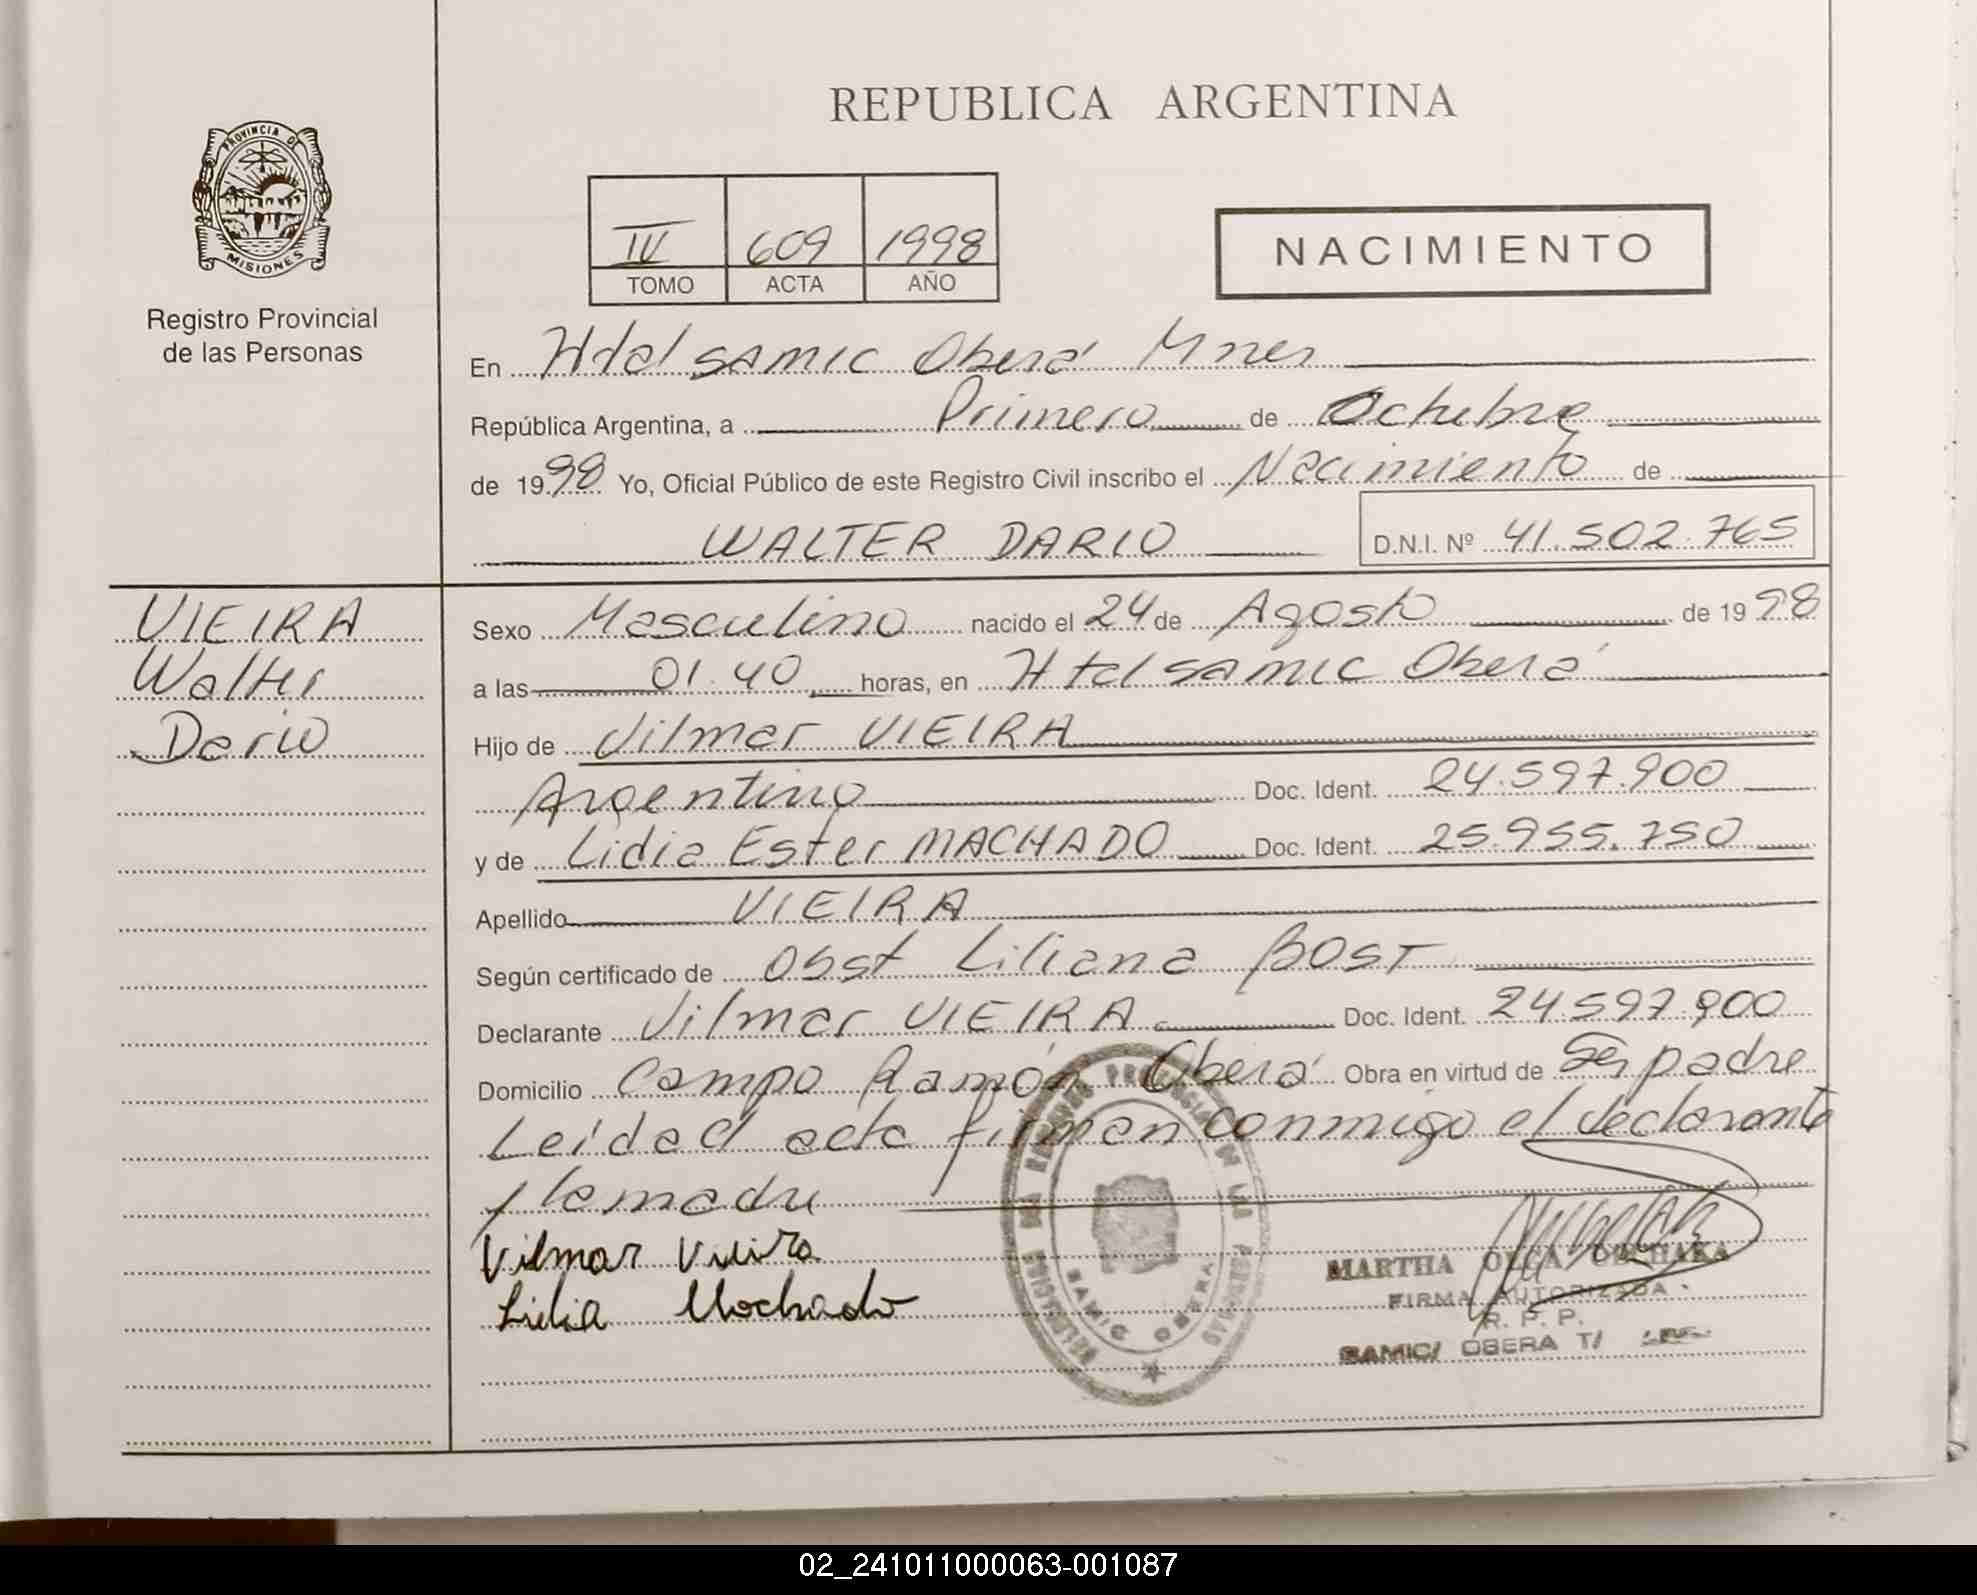 REPUBLICA ARGENTINA
PROVINCIA DE
MISIONES
Registro Provincial
de las Personas
IV 609 1998
TOMO ACTA AÑO
NACIMIENTO
En Htal SAMIC Oberá Mnes
República Argentina, a Primero de Octubre
de 1998 Yo, Oficial Público de este Registro Civil inscribo el Nacimiento de
WALTER DARIO D.N.I. Nº 41.502.765
VIEIRA
Walter
Dario
Sexo Masculino nacido el 24 de Agosto de 1998
a las 01.40 horas, en Htal SAMIC Oberá
Hijo de Vilmar VIEIRA
Argentino Doc. Ident. 24.597.900
y de Lidia Ester MACHADO Doc. Ident. 25.955.750
Apellido VIEIRA
Según certificado de Obst Liliana BOST
Declarante Vilmar VIEIRA Doc. Ident. 24.597.900
Domicilio Campo Ramón Oberá Obra en virtud de Ser padre
Leida el acta firman conmigo el declarante
y la madre
Vilmar Vieira
Lidia Machado
SAMIC OBERA
MARTHA OLGA
FIRMA AUTORIZADA
R. P. P.
SAMIC/ OBERA T/
02_241011000063-001087